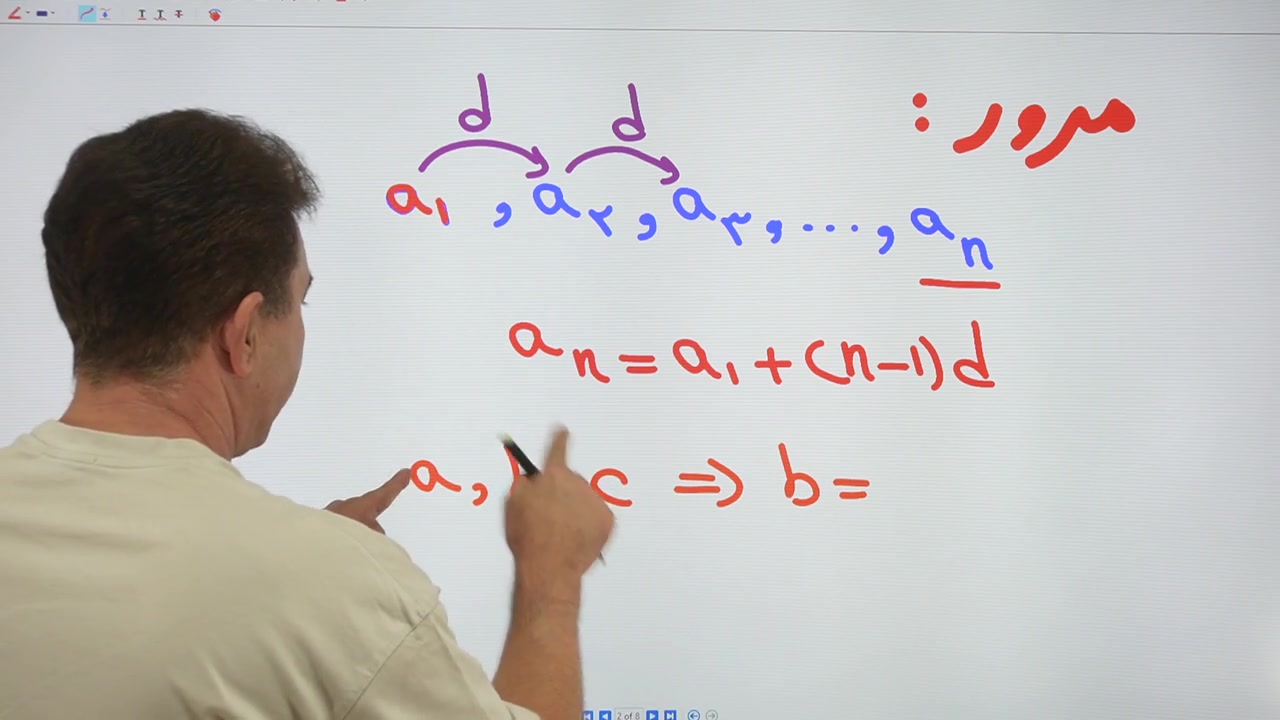 مرور :
d d
a۱ , a۲ , a۳ , ... , an
an = a۱ + (n-۱)d
a, b, c ⇒ b =
2 of 8